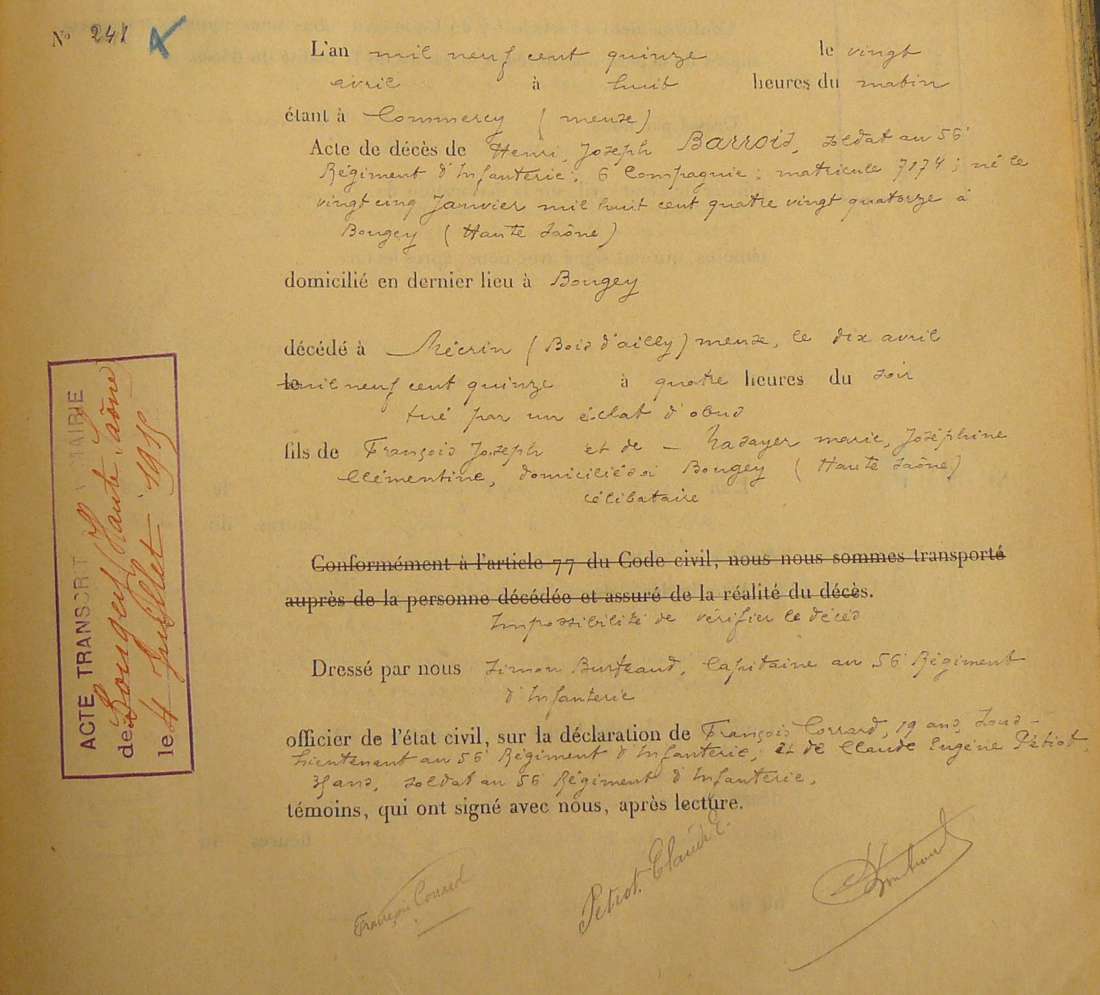 N° 241
L'an mil neuf cent quinze le vingt
avril à huit heures du matin
étant à Commercy (meuse)
Acte de décès de Henri, Joseph Barrois, soldat au 56e
Régiment d'Infanterie, 6 Compagnie; matricule 7174; né le
vingt cinq Janvier mil huit cent quatre vingt quatorze à
Bougey (Haute Saône)
domicilié en dernier lieu à Bougey
décédé à Mécrin (Bois d'ailly) meuse, le dix avril
le mil neuf cent quinze à quatre heures du soir
tué par un éclat d'obus
fils de François Joseph et de – marie, Joséphine
Clémentine, domiciliés à Bougey (Haute Saône)
célibataire
Conformément à l'article 77 du Code civil, nous nous sommes transporté
auprès de la personne décédée et assuré de la réalité du décès.
Impossibilité de vérifier le décès
Dressé par nous Simon Capitaine au 56e Régiment
d'Infanterie
officier de l'état civil, sur la déclaration de François 19 ans, Sous-
Lieutenant au 56e Régiment d'Infanterie; et de Claude Eugène Petiot,
ans, soldat au 56e Régiment d'Infanterie,
témoins, qui ont signé avec nous, après lecture.
François Petiot Claude E.
ACTE TRANSCRIT MAIRIE
de Bougey (Haute Saône)
le 4 Juillet 1915